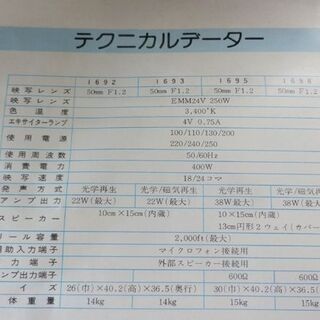 テクニカルデーター
1692 1693 1695 1696
映写レンズ 50mm F1.2 50mm F1.2 50mm F1.2 50mm F1.2
映写ランプ EMM24V 250W
色温度 3,400°K
エキサイターランプ 4V 0.75A
使用電源 100/110/130/200
220/240/250
使用周波数 50/60Hz
消費電力 400W
映写速度 18/24コマ
発声方式 光学再生 光学/磁気再生 光学再生 光学/磁気再生
アンプ出力 22W(最大) 22W(最大) 38W(最大) 38W(最大)
スピーカー 10cm×15cm(内蔵) 10×15cm(内蔵)
13cm円形2ウェイ(カバー
リール容量 2,000ft(最大)
補助入力端子 マイクロフォン接続用
力端子 外部スピーカー接続用
ンプ出力端子 600Ω 600Ω
イズ 26(巾)×40.2(高)×36.5(奥行) 30(巾)×40.2(高)×36.5(
体重量 14kg 14kg 15kg 15k